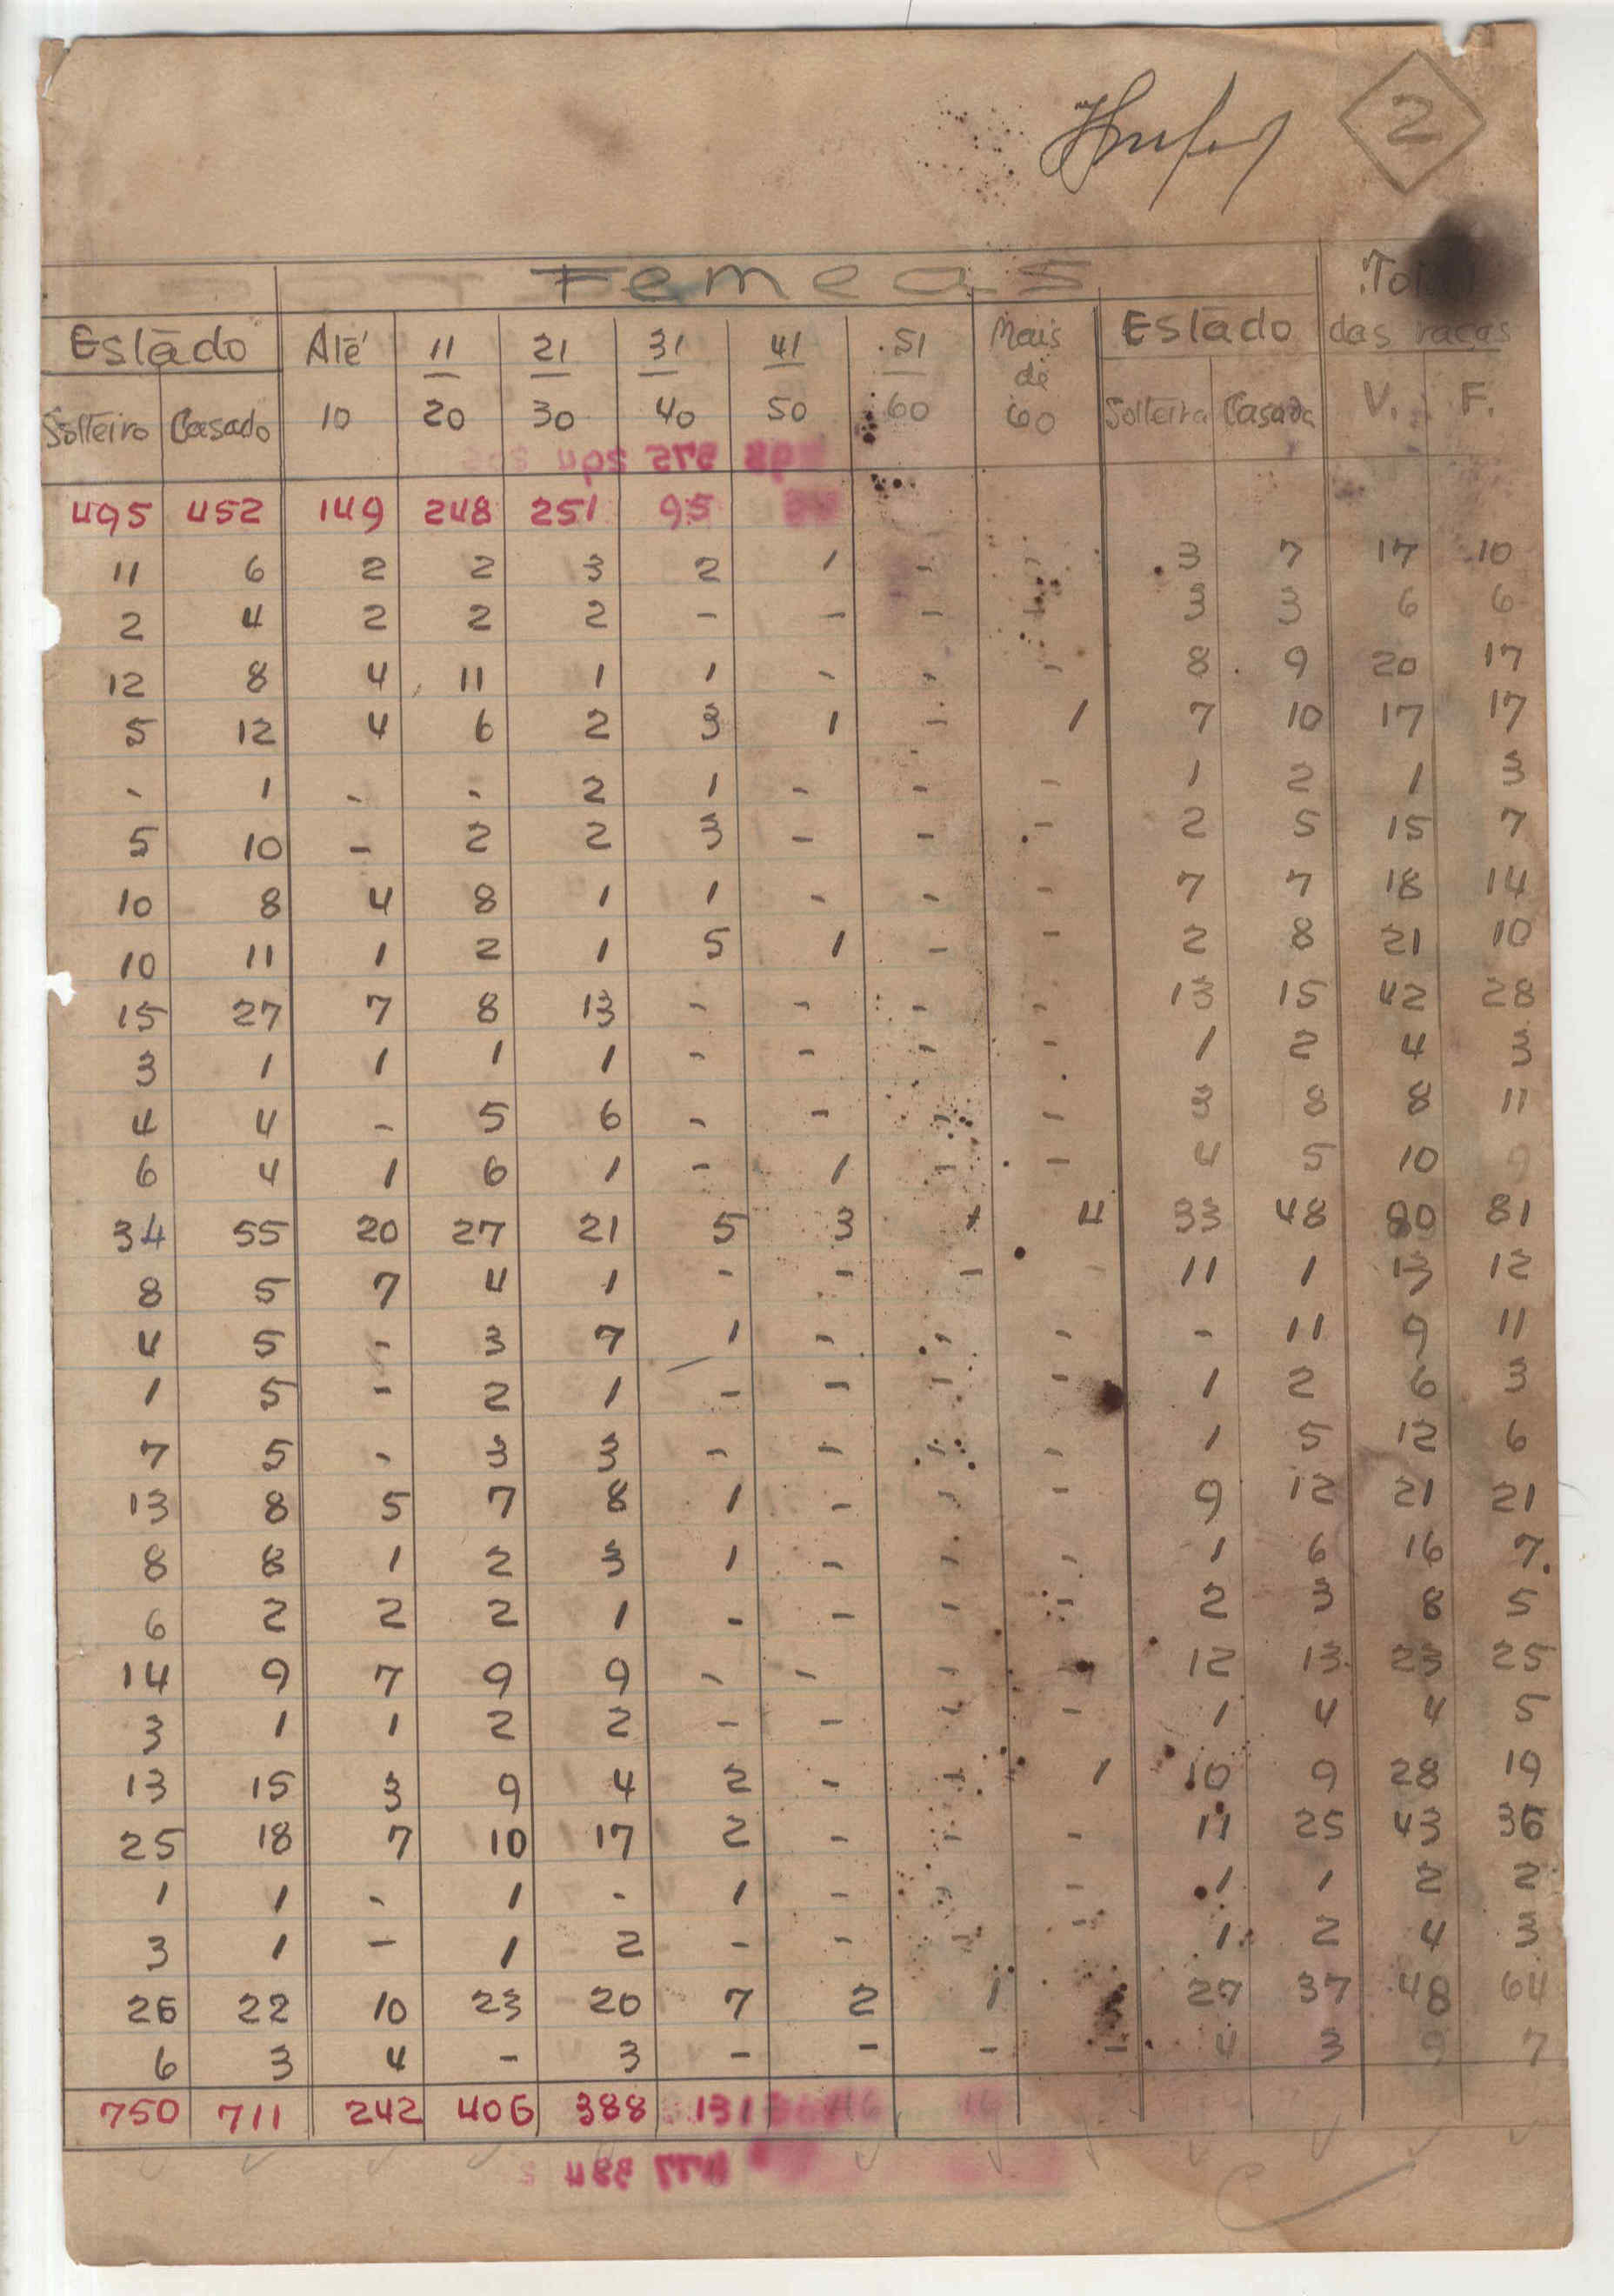 2
Femeas
Total
das raças
Estado Até 11 21 31 41 51 Mais de 60 Estado
Solteiro Casado 10 20 30 40 50 60 Solteira Casada V. F.
495 452 149 248 251 95
11 6 2 2 3 2 1 - - 3 7 17 10
2 4 2 2 2 - - - - 3 3 6 6
12 8 4 11 1 1 - - - 8 9 20 17
5 12 4 6 2 3 1 - 1 7 10 17 17
- 1 - - 2 1 - - - 1 2 1 3
5 10 - 2 2 3 - - - 2 5 15 7
10 8 4 8 1 1 - - - 7 7 18 14
10 11 1 2 1 5 1 - - 2 8 21 10
15 27 7 8 13 - - - - 13 15 42 28
3 1 1 1 1 - - - - 1 2 4 3
4 4 - 5 6 - - - - 3 8 8 11
6 4 1 6 1 - 1 - - 4 5 10 9
34 55 20 27 21 5 3 4 33 48 81
8 5 7 4 1 - - - - 11 1 13 12
4 5 - 3 7 1 - - - - 11 9 11
1 5 - 2 1 - - - - 1 2 6 3
7 5 - 3 3 - - - - 1 5 12 6
13 8 5 7 8 1 - - - 9 12 21 21
8 8 1 2 3 1 - - - 1 6 16 7
6 2 2 2 1 - - - - 2 3 8 5
14 9 7 9 9 - - - - 12 13 23 25
3 1 1 2 2 - - - - 1 4 4 5
13 15 3 9 4 2 - - 1 10 9 28 19
25 18 7 10 17 2 - - - 11 25 43 36
1 1 - 1 - 1 - - - 1 1 2 2
3 1 - 1 2 - - - - 1 2 4 3
26 22 10 23 20 7 2 1 - 27 37 48 64
6 3 4 - 3 - - - - 4 3 9 7
750 711 242 406 388 131 16